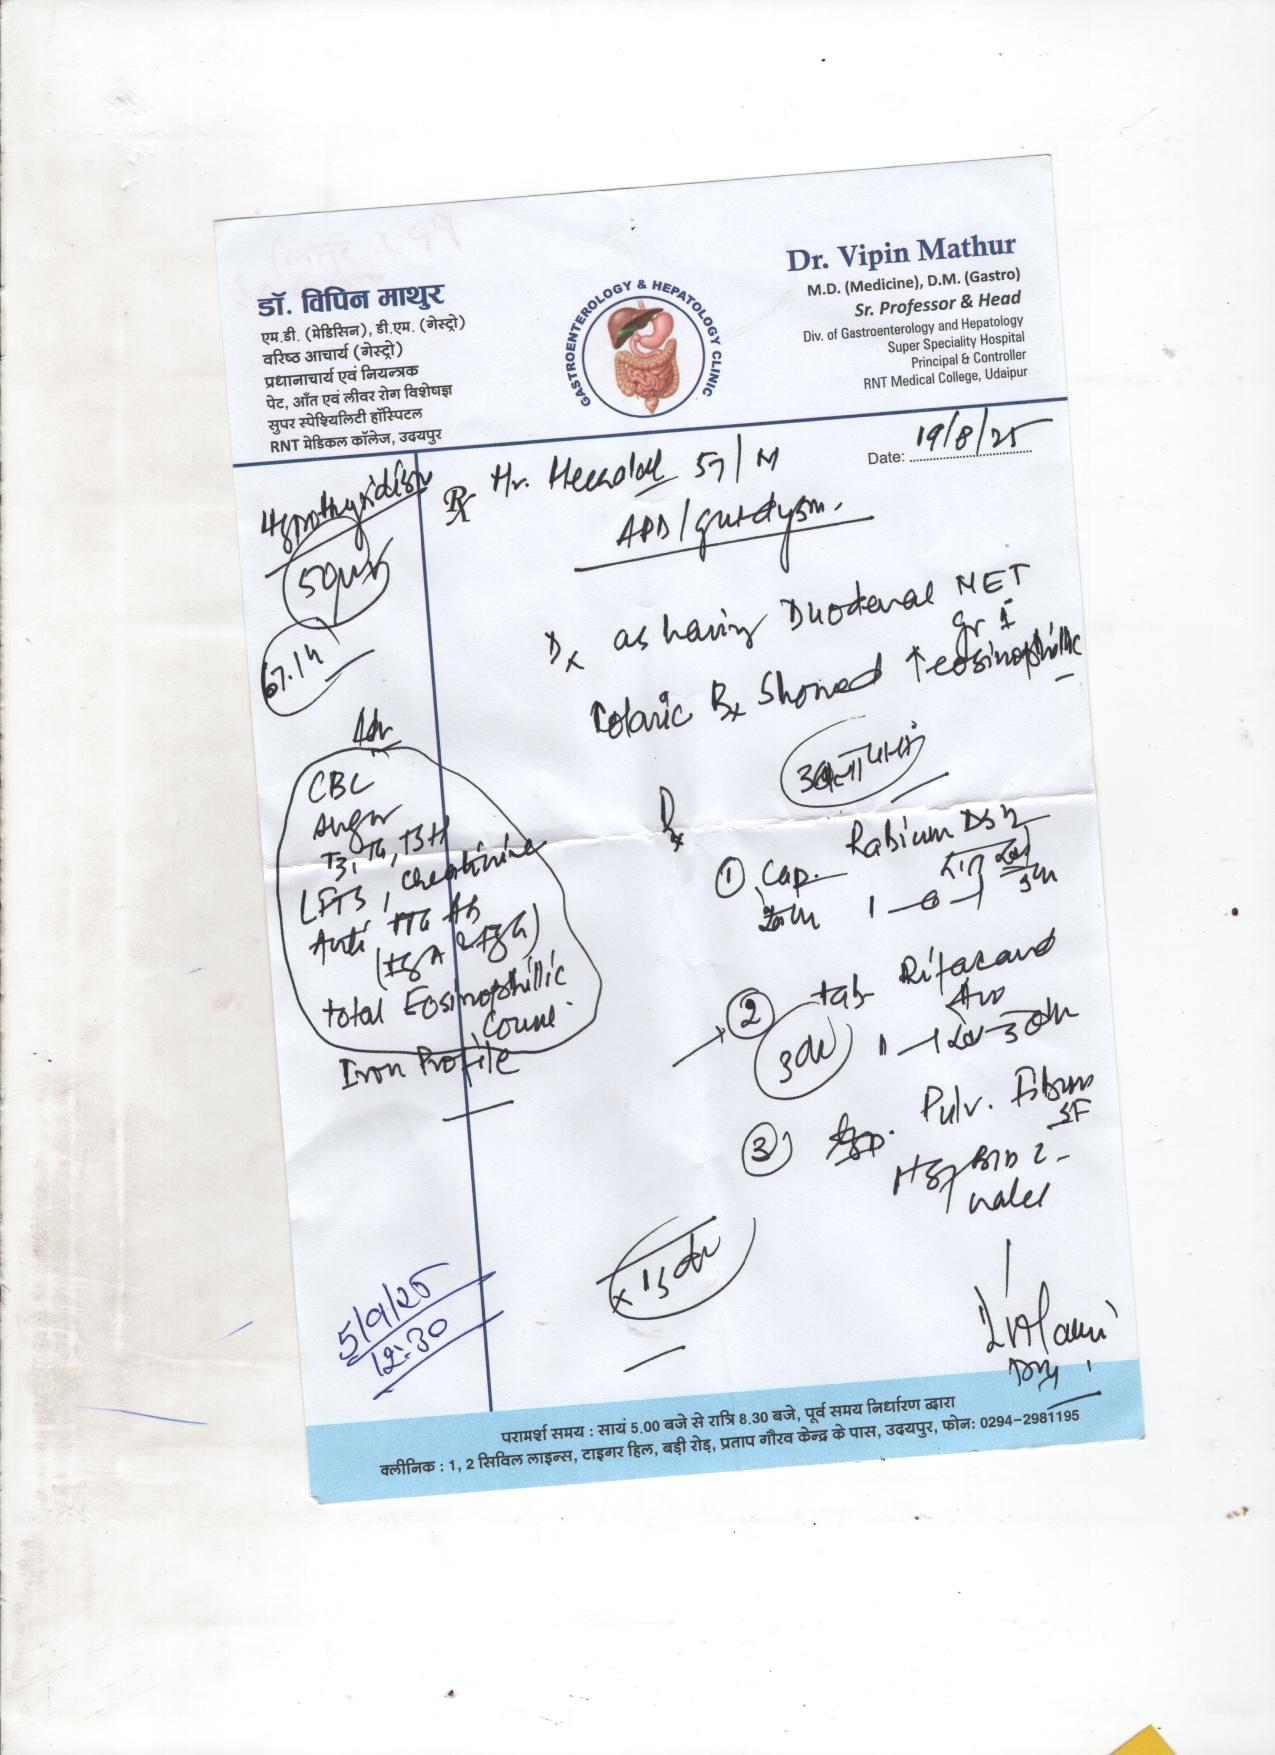 डॉ. विपिन माथुर
एम.डी. (मेडिसिन), डी.एम. (गेस्ट्रो)
वरिष्ठ आचार्य (गेस्ट्रो)
प्रधानाचार्य एवं नियन्त्रक
पेट, आँत एवं लीवर रोग विशेषज्ञ
सुपर स्पेश्यिलिटी हॉस्पिटल
RNT मेडिकल कॉलेज, उदयपुर
GASTROENTEROLOGY & HEPATOLOGY CLINIC
Dr. Vipin Mathur
M.D. (Medicine), D.M. (Gastro)
Sr. Professor & Head
Div. of Gastroenterology and Hepatology
Super Speciality Hospital
Principal & Controller
RNT Medical College, Udaipur
Date: 19/8/25
Rx Mr. 57/M
APD/
Dx as having Duodenal NET
gr I
Colonic Bx showed ↑ eosinophillic
Hypothyroidism
50
67.1
Adv
CBC
Sugar
T3, T4, TSH
LFTs, Creatinine
Anti TTG Ab
(IgA & IgG)
Total Eosinophillic
Count
Iron Profile
Rx
① Cap. Rabium DSR
1—0—1
② tab
③ Pulv.
BID
water
x 15
5/9/25
12:30
परामर्श समय : सायं 5.00 बजे से रात्रि 8.30 बजे, पूर्व समय निर्धारण द्वारा
क्लीनिक : 1, 2 सिविल लाइन्स, टाइगर हिल, बड़ी रोड़, प्रताप गौरव केन्द्र के पास, उदयपुर, फोन: 0294-2981195